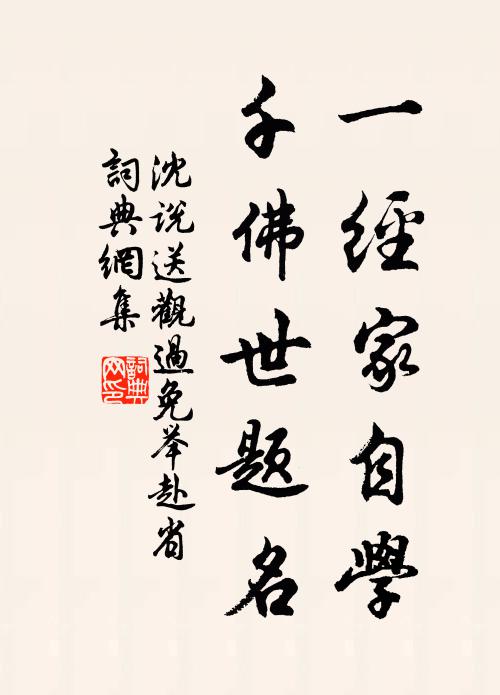 一經家自學
千佛世題名
沈说送觀過免举赴省
詞典網集
詞典网印